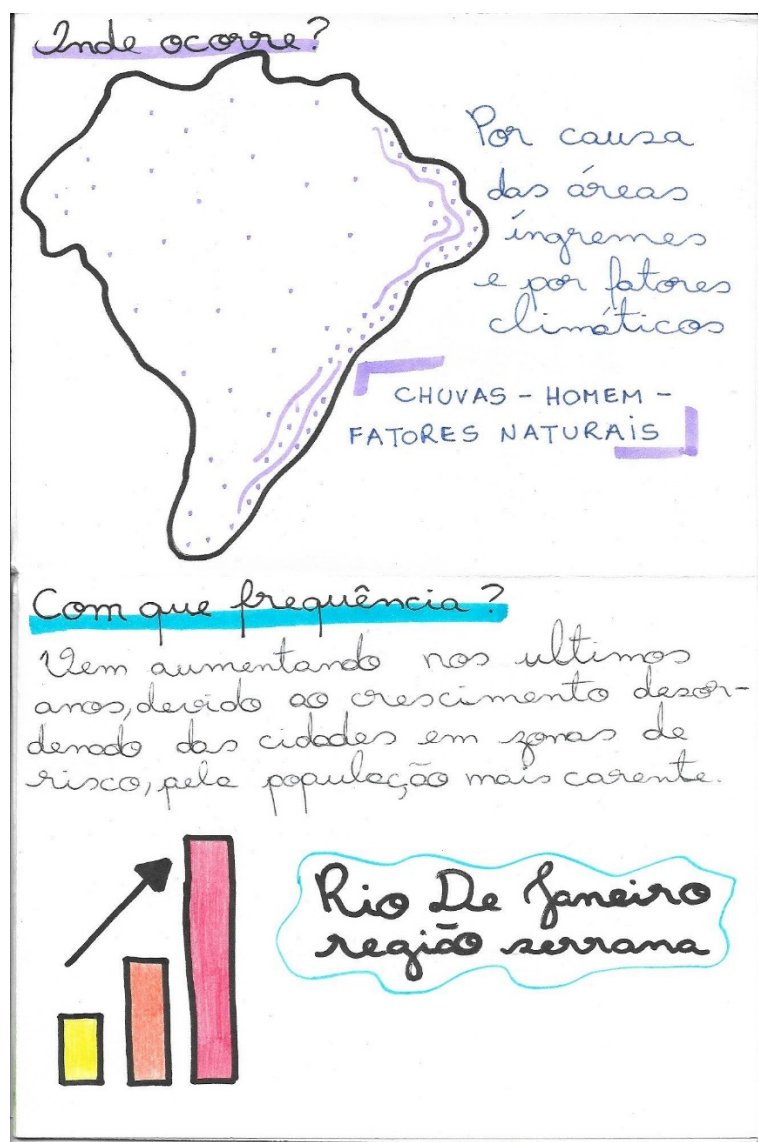 Onde ocorre?
Por causa
das áreas
íngremes
e por fatores
climáticos
CHUVAS - HOMEM -
FATORES NATURAIS
Com que frequência?
Vem aumentando nos ultimos
anos, devido ao crescimento desor-
denado das cidades em zonas de
risco, pela população mais carente.
Rio De Janeiro
região serrana